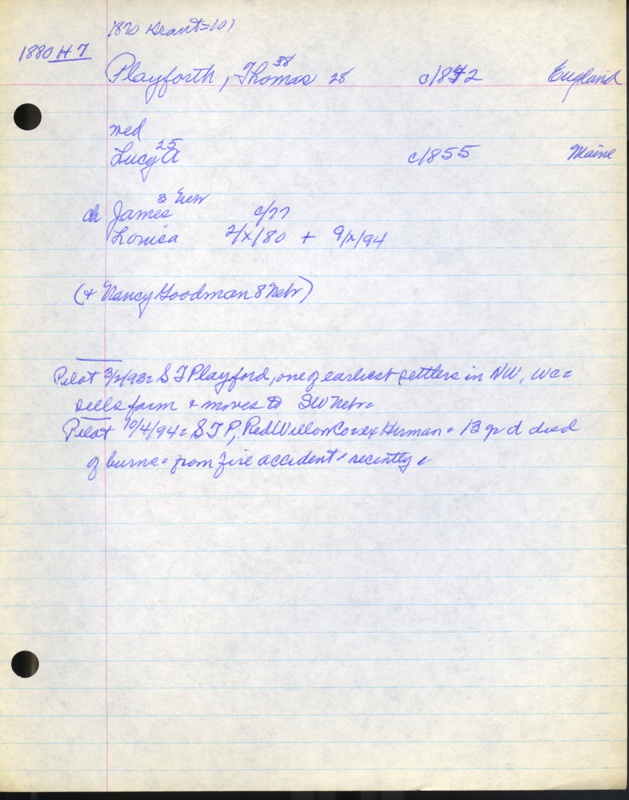 1870 Grant=101
1880 H 7
Playforth, Thomas 38 28 c/842 England
med
Lucy A 25 c/855 Maine
ch James 3 Nebr c/77
Louisa 2/x/80 + 9/x/94
(+ Nancy Goodman 8 Nebr)
Pilot 3/2/93= S T Playford, one of earliest settlers in NW, WC=
sells farm & moves to SW Nebr=
Pilot 10/4/94= S T P, Red Willow Co = ex Herman = 13 yr d died
of burns = from fire accident recently